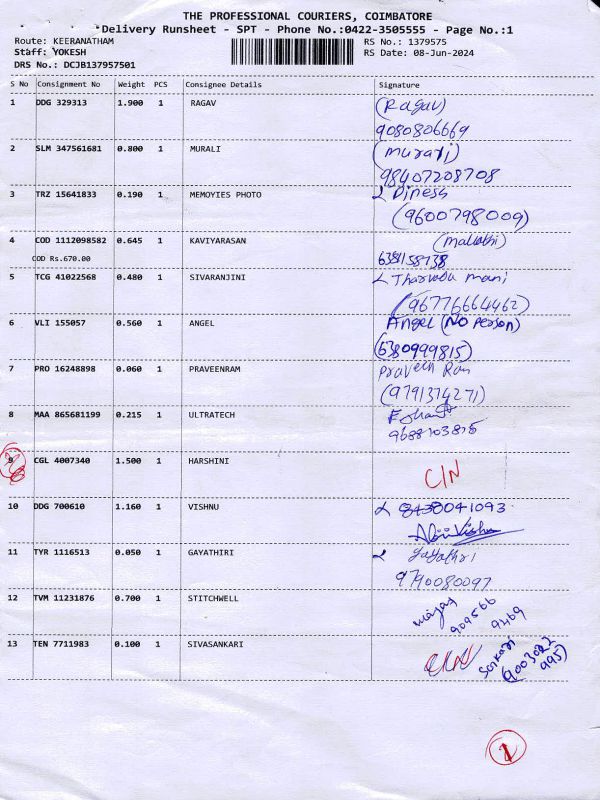 THE PROFESSIONAL COURIERS, COIMBATORE
*Delivery Runsheet - SPT - Phone No.:0422-3505555 - Page No.:1
Route: KEERANATHAM
RS No.: 1379575
Staff: YOKESH
RS Date: 08-Jun-2024
DRS No.: DCJB137957501
S No Consignment No Weight PCS Consignee Details Signature
1 DDG 329313 1.900 1 RAGAV (Ragav)
9080806669
2 SLM 347561681 0.800 1 MURALI (murali)
98407208708
3 TRZ 15641833 0.190 1 MEMOYIES PHOTO Dinesh
(9600798009)
4 COD 1112098582 0.645 1 KAVIYARASAN
COD Rs.670.00
5 TCG 41022568 0.480 1 SIVARANJINI mani
(96776664462)
6 VLI 155057 0.560 1 ANGEL Angel (No person)
(6380999815)
7 PRO 16248898 0.060 1 PRAVEENRAM Praveen Ram
(9791374271)
8 MAA 865681199 0.215 1 ULTRATECH
9688103815
9 CGL 4007340 1.500 1 HARSHINI C/N
10 DDG 700610 1.160 1 VISHNU 8438041093
11 TYR 1116513 0.050 1 GAYATHIRI Gayathri
9790080097
12 TVM 11231876 0.700 1 STITCHWELL
909566
9469
13 TEN 7711983 0.100 1 SIVASANKARI
(9003022
995)
1